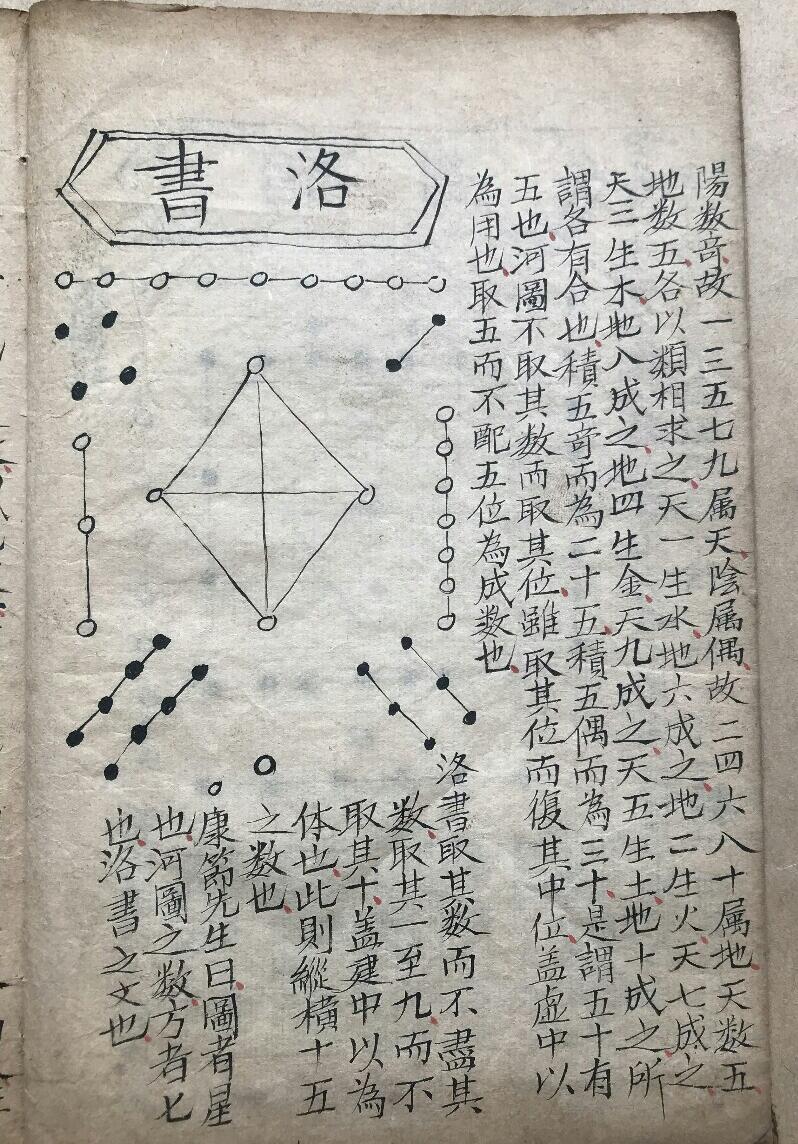 洛書
陽数竒故一三五七九属天陰属偶故二四六八十属地天数五
地数五各以類相求之天一生水地六成之地二生火天七成之
天三生木地八成之地四生金天九成之天五生土地十成之所
謂各有合也積五竒而為二十五積五偶而為三十是謂五十有
五也河圖不取其数而取其位雖取其位而復其中位盖虚中以
為用也取五而不配五位為成数也
洛書取其数而不盡其
数取其一至九而不
取其十盖建中以為
体也此則縱橫十五
之数也
康節先生曰圖者星
也河圖之数方者七
也洛書之文也